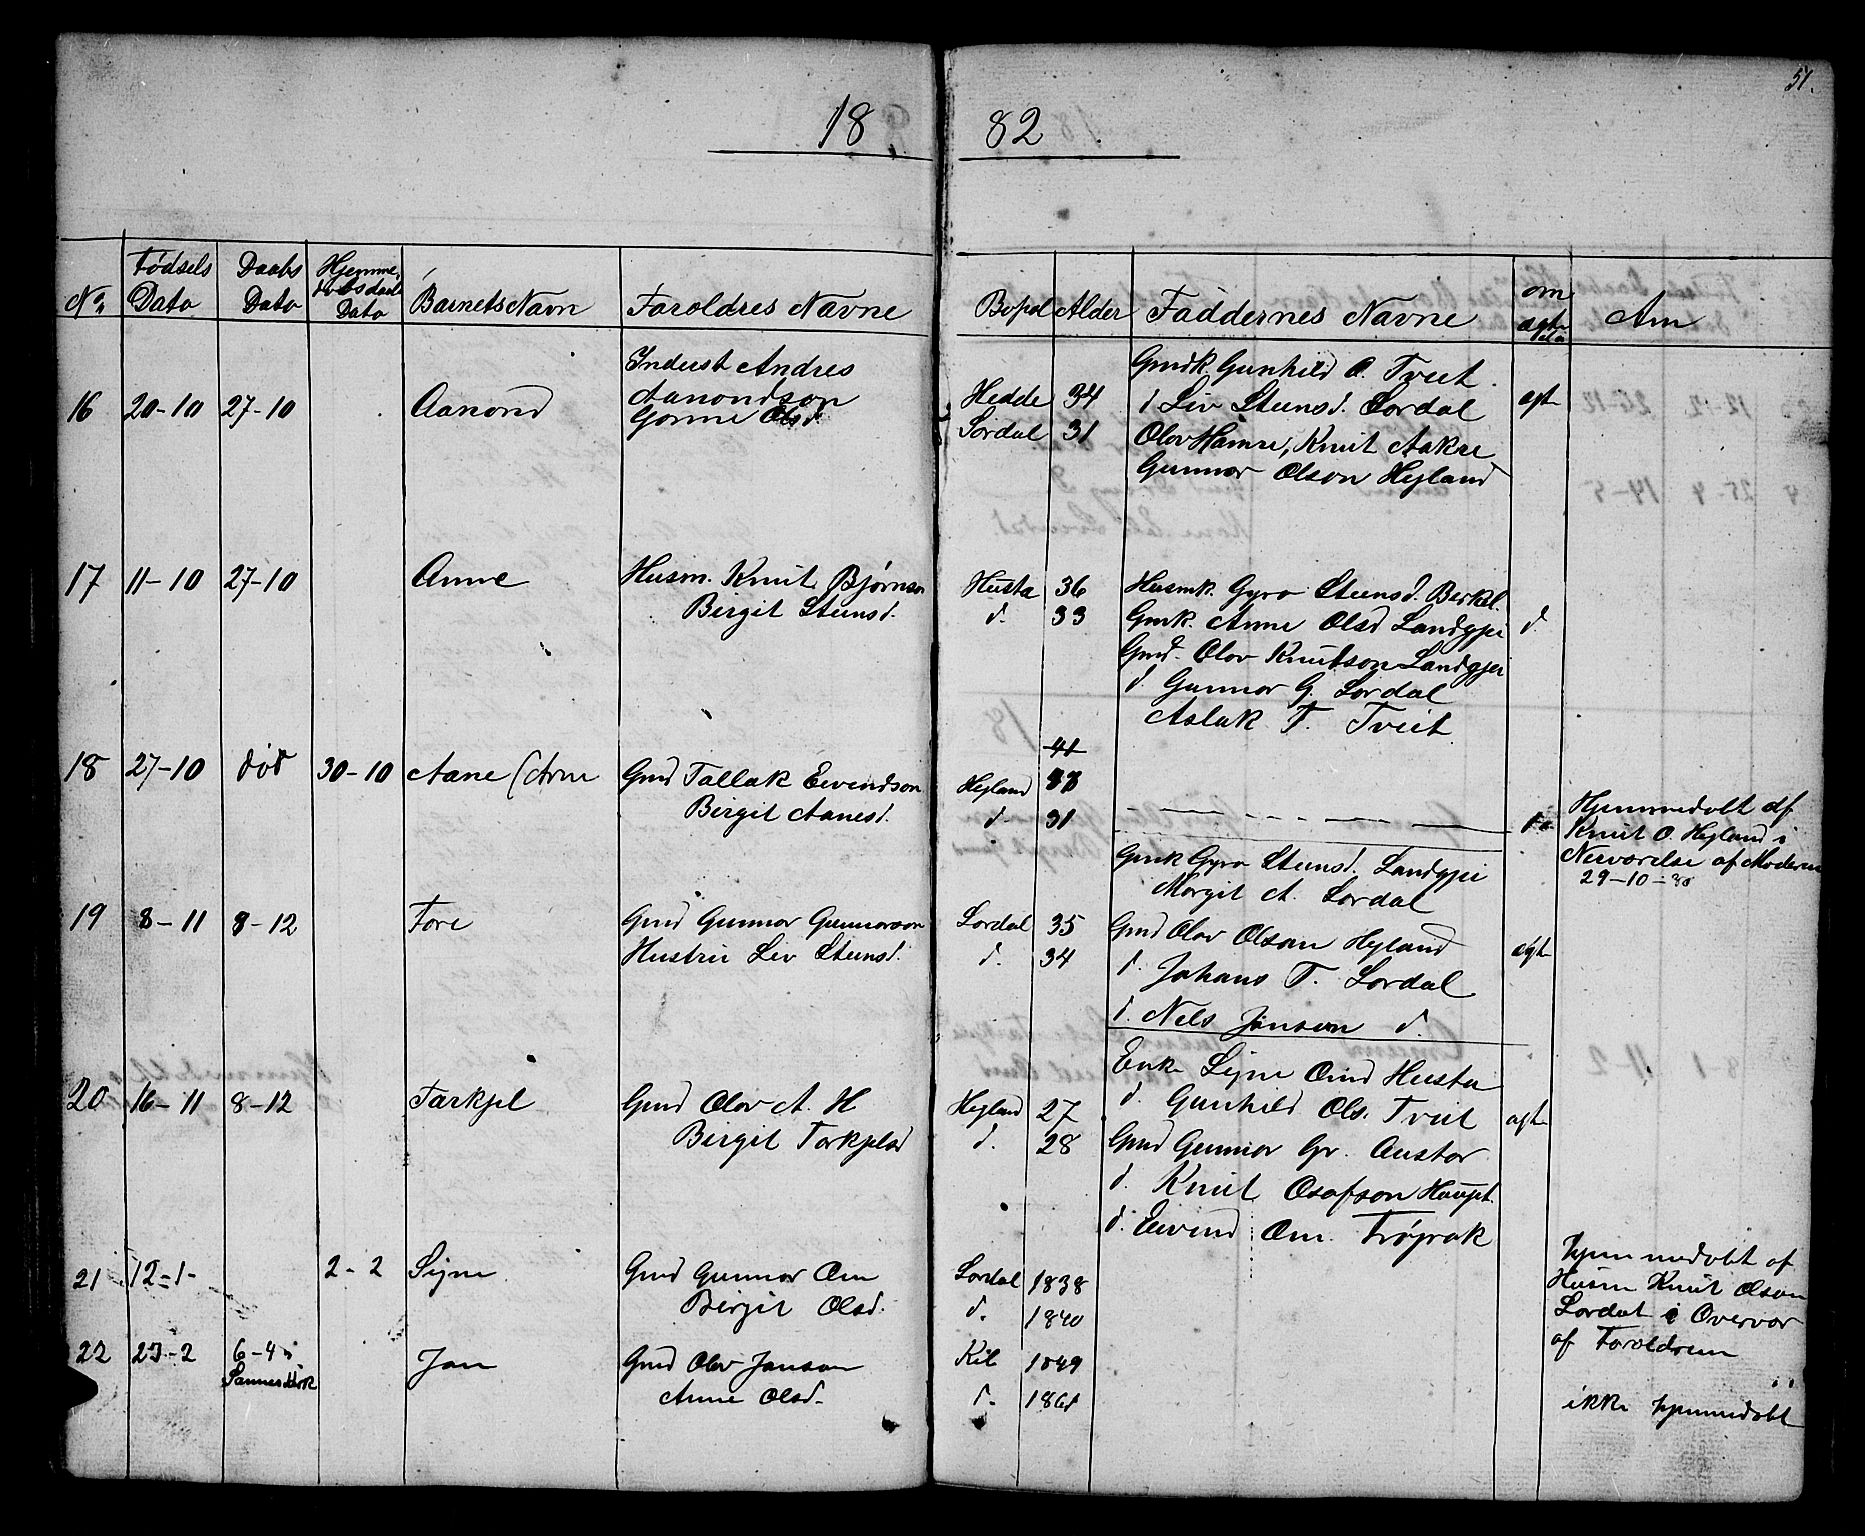 51.
18 82
No. Fødsels Dato Daabs Dato Hjemme, dobsdaab Dato Barnets Navn Foroldres Navne Bopæl Alder Faddernes Navne om ægte Am
Inderst Andres
Aanondson
Gonne Olsd.
16 20-10 27-10 Aanond
Hedde 34
Lordal 31
Gmdk. Gunhild O. Tveit
d Liv Steensd. Lordal
Olov Hamre, Knut Aakre
Gunnar Olson Heyland
agt
17 11-10 27-10 Anne Husm. Knut Bjørnson
Birgit Steensd.
Husta 36
d. 33
Husmk. Gyro Steensd. Berkel.
Gmk. Anne Olsd Landgjei
Gmd. Olov Knutson Landgjei
d Gunnar G. Lordal
Aslak T. Tveit
d.
18 27-10 død 30-10 Aane (Arne Gmd Tallak Eivendson
Birgit Aanesd.
41
Heyland
d. 31
Hjemmedobt af
Knut O. Heyland i
Nerværelse af Moderen
29-10-30
19 8-11 8-12 Tore Gmd Gunnar Gunnarson
Hustru Liv Steensd.
Lordal 35
d. 34
Gmk Gyro Steensd. Landgjei
Margit A. Lordal
Gmd Olov Olson Heyland
d. Johans T. Lordal
d. Nels Jonson d.
ægt
20 16-11 8-12 Tarkjel Gmd Olov A. H
Birgit Torkjelsd
Heyland 27
d. 28
Enk. Signe Omd Husta
d. Gunhild Ols. Tveit
Gmd Gunnar Gr. Austar
d. Knut Osofson Haupt.
d. Eivind Om. Trøjrak
agt
21 12-1- 2-2 Signe Gmd Gunnar Om
Birgit Olsd.
Lordal 1838
d. 1840
hjemmedobt af
Husm Knut Olson
Lordal i Overvær
af Foroldrene
22 23-2 6-4 i
Sannes Kirk
Jon Gmd Olov Jonson
Anne Olsd.
Kil 1849
d. 1861
ikke hjemmedobt